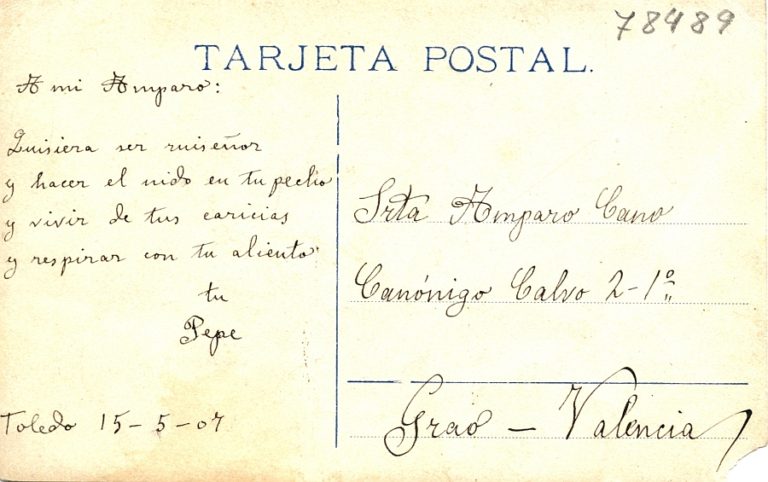 78489
TARJETA POSTAL.
A mi Amparo:
Quisiera ser ruiseñor
y hacer el nido en tu pecho
y vivir de tus caricias
y respirar con tu aliento.
tu
Pepe
Toledo 15-5-07
Srta Amparo Cano
Canónigo Calvo 2-1º
Grao - Valencia